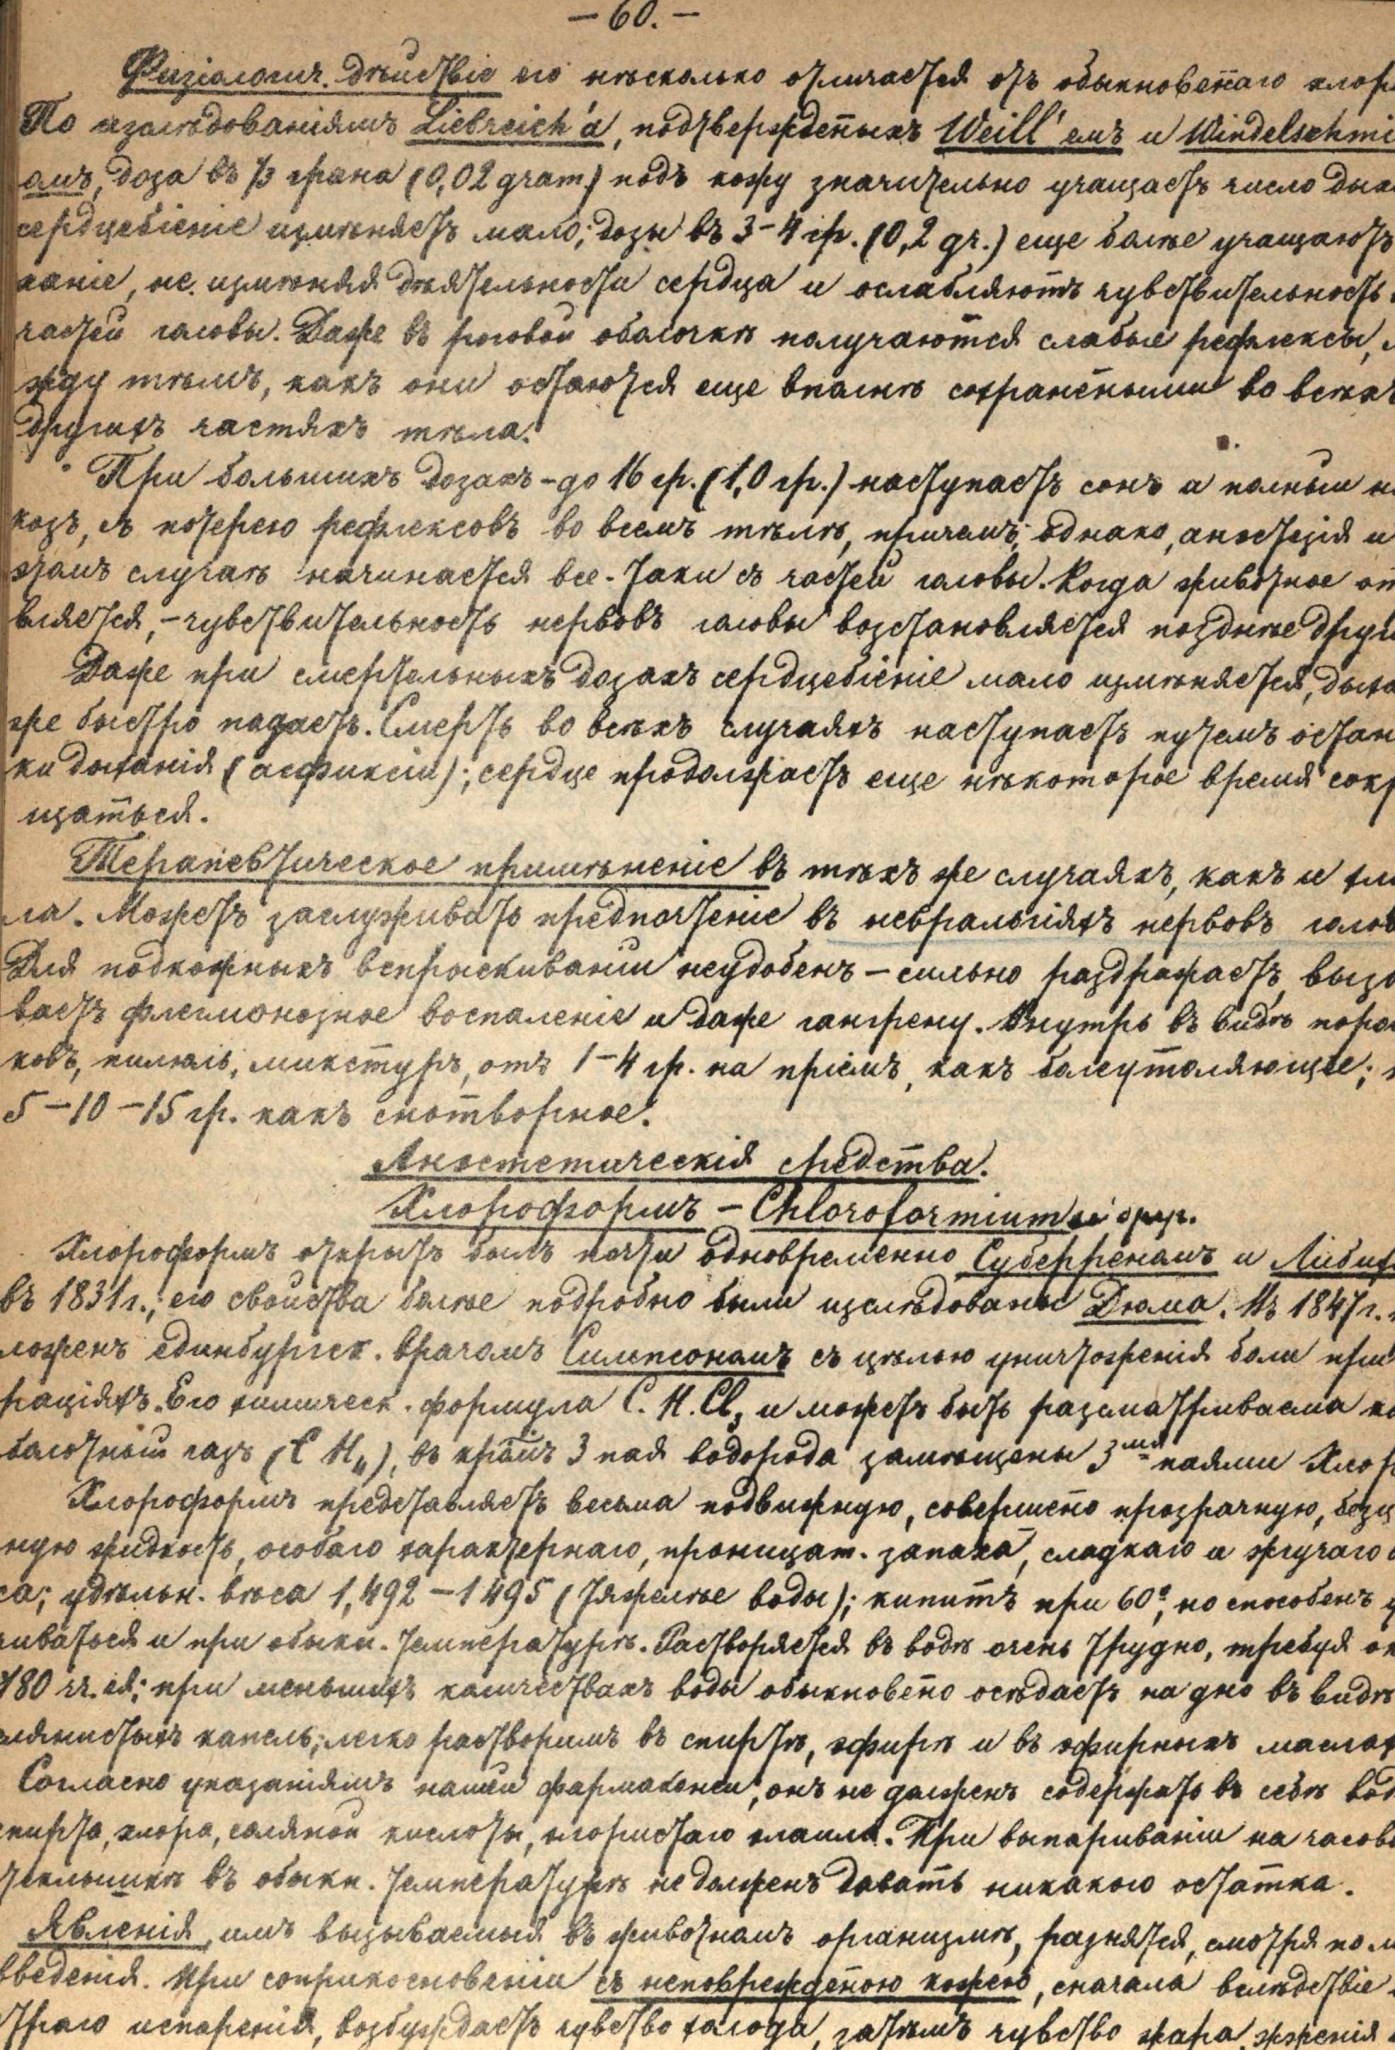 — 60. —
Физіологич. дѣйствіе его нѣсколько отличается отъ обыкновеннаго хлора
По изслѣдованіямъ Liebreich'а, подтвержденныхъ Weill'емъ и Windelschmi
омъ, доза въ ⅓ грана (0,02 gram.) подъ кожу значительно учащаетъ число дых
сердцебіеніе измѣняетъ мало; дозы въ 3–4 гр. (0,2 gr.) еще болѣе учащаютъ
ханіе, не измѣняя дѣятельности сердца и ослабляютъ чувствительность
частей головы. Даже въ роговой оболочкѣ получаются слабые рефлексы,
жду тѣмъ, какъ они остаются еще вполнѣ сохраненными во всѣхъ
другихъ частяхъ тѣла.
При большихъ дозахъ – до 16 гр. (1,0 гр.) наступаетъ сонъ и полный на
козъ, съ потерею рефлексовъ во всемъ тѣлѣ, причемъ, однако, анестезія и
этомъ случаѣ начинается все-таки съ частей головы. Когда животное оп
вляется, – чувствительность нервовъ головы возстановляется позднѣе други
Даже при смертельныхъ дозахъ сердцебіеніе мало измѣняется, дыха
же быстро падаетъ. Смерть во всѣхъ случаяхъ наступаетъ путемъ остан
ки дыханія (асфиксіи); сердце продолжаетъ еще нѣкоторое время сокр
щаться.
Терапевтическое примѣненіе въ тѣхъ же случаяхъ, какъ и хло
ла. Можетъ заслуживать предпочтеніе въ невралгіяхъ нервовъ голов
Для подкожныхъ вспрыскиваній неудобенъ – сильно раздражаетъ, вызы
ваетъ флегмонозное воспаленіе и даже гангрену. Внутрь въ видѣ порош
ковъ, пилюль, микстуръ, отъ 1–4 гр. на пріемъ, какъ болеутоляющее;
5–10–15 гр. какъ снотворное.
Анэстетическія средства.
Хлороформъ – Chloroformium
Хлороформъ открытъ былъ почти одновременно Суберреномъ и Либих
въ 1831 г.; его свойства болѣе подробно были изслѣдованы Дюма. Въ 1847 г.
ложенъ единбургск. врачомъ Симпсономъ съ цѣлью уничтоженія боли при
раціяхъ. Его химическ. формула C. H. Cl₃ и можетъ быть разсматриваема ка
болотный газъ (C H₄), въ кромъ 3 пая водорода замѣщены 3мя паями Хлор
Хлороформъ представляетъ весьма подвижную, совершенно прозрачную, безц
ную жидкость, особаго характернаго, проницат. запаха, сладкаго и жгучаго
са; удѣльн. вѣса 1,492–1495 (тяжелѣе воды); кипитъ при 60°, но способенъ у
чиваться и при обыкн. температурѣ. Растворяется въ водѣ очень трудно, требуя ок
180 чч. ея; при меньшихъ количествахъ воды обыкновенно осѣдаетъ на дно въ видѣ
слянистыхъ капель; легко растворимъ въ спиртѣ, эфирѣ и въ эфирныхъ маслах
Согласно указаніямъ нашей фармакопеи, онъ не долженъ содержать въ себѣ вод
спирта, хлора, соляной кислоты, хлористаго елаила. При выпариваніи на часово
стеклышкѣ въ обыкн. температурѣ не долженъ давать никакого остатка.
Явленія, имъ вызываемыя въ животномъ организмѣ, разнятся, смотря по м
введенія. При соприкосновеніи съ неповрежденною кожею, сначала вслѣдствіе
страго испаренія, возбуждаетъ чувство холода, затѣмъ чувство жара, жженія